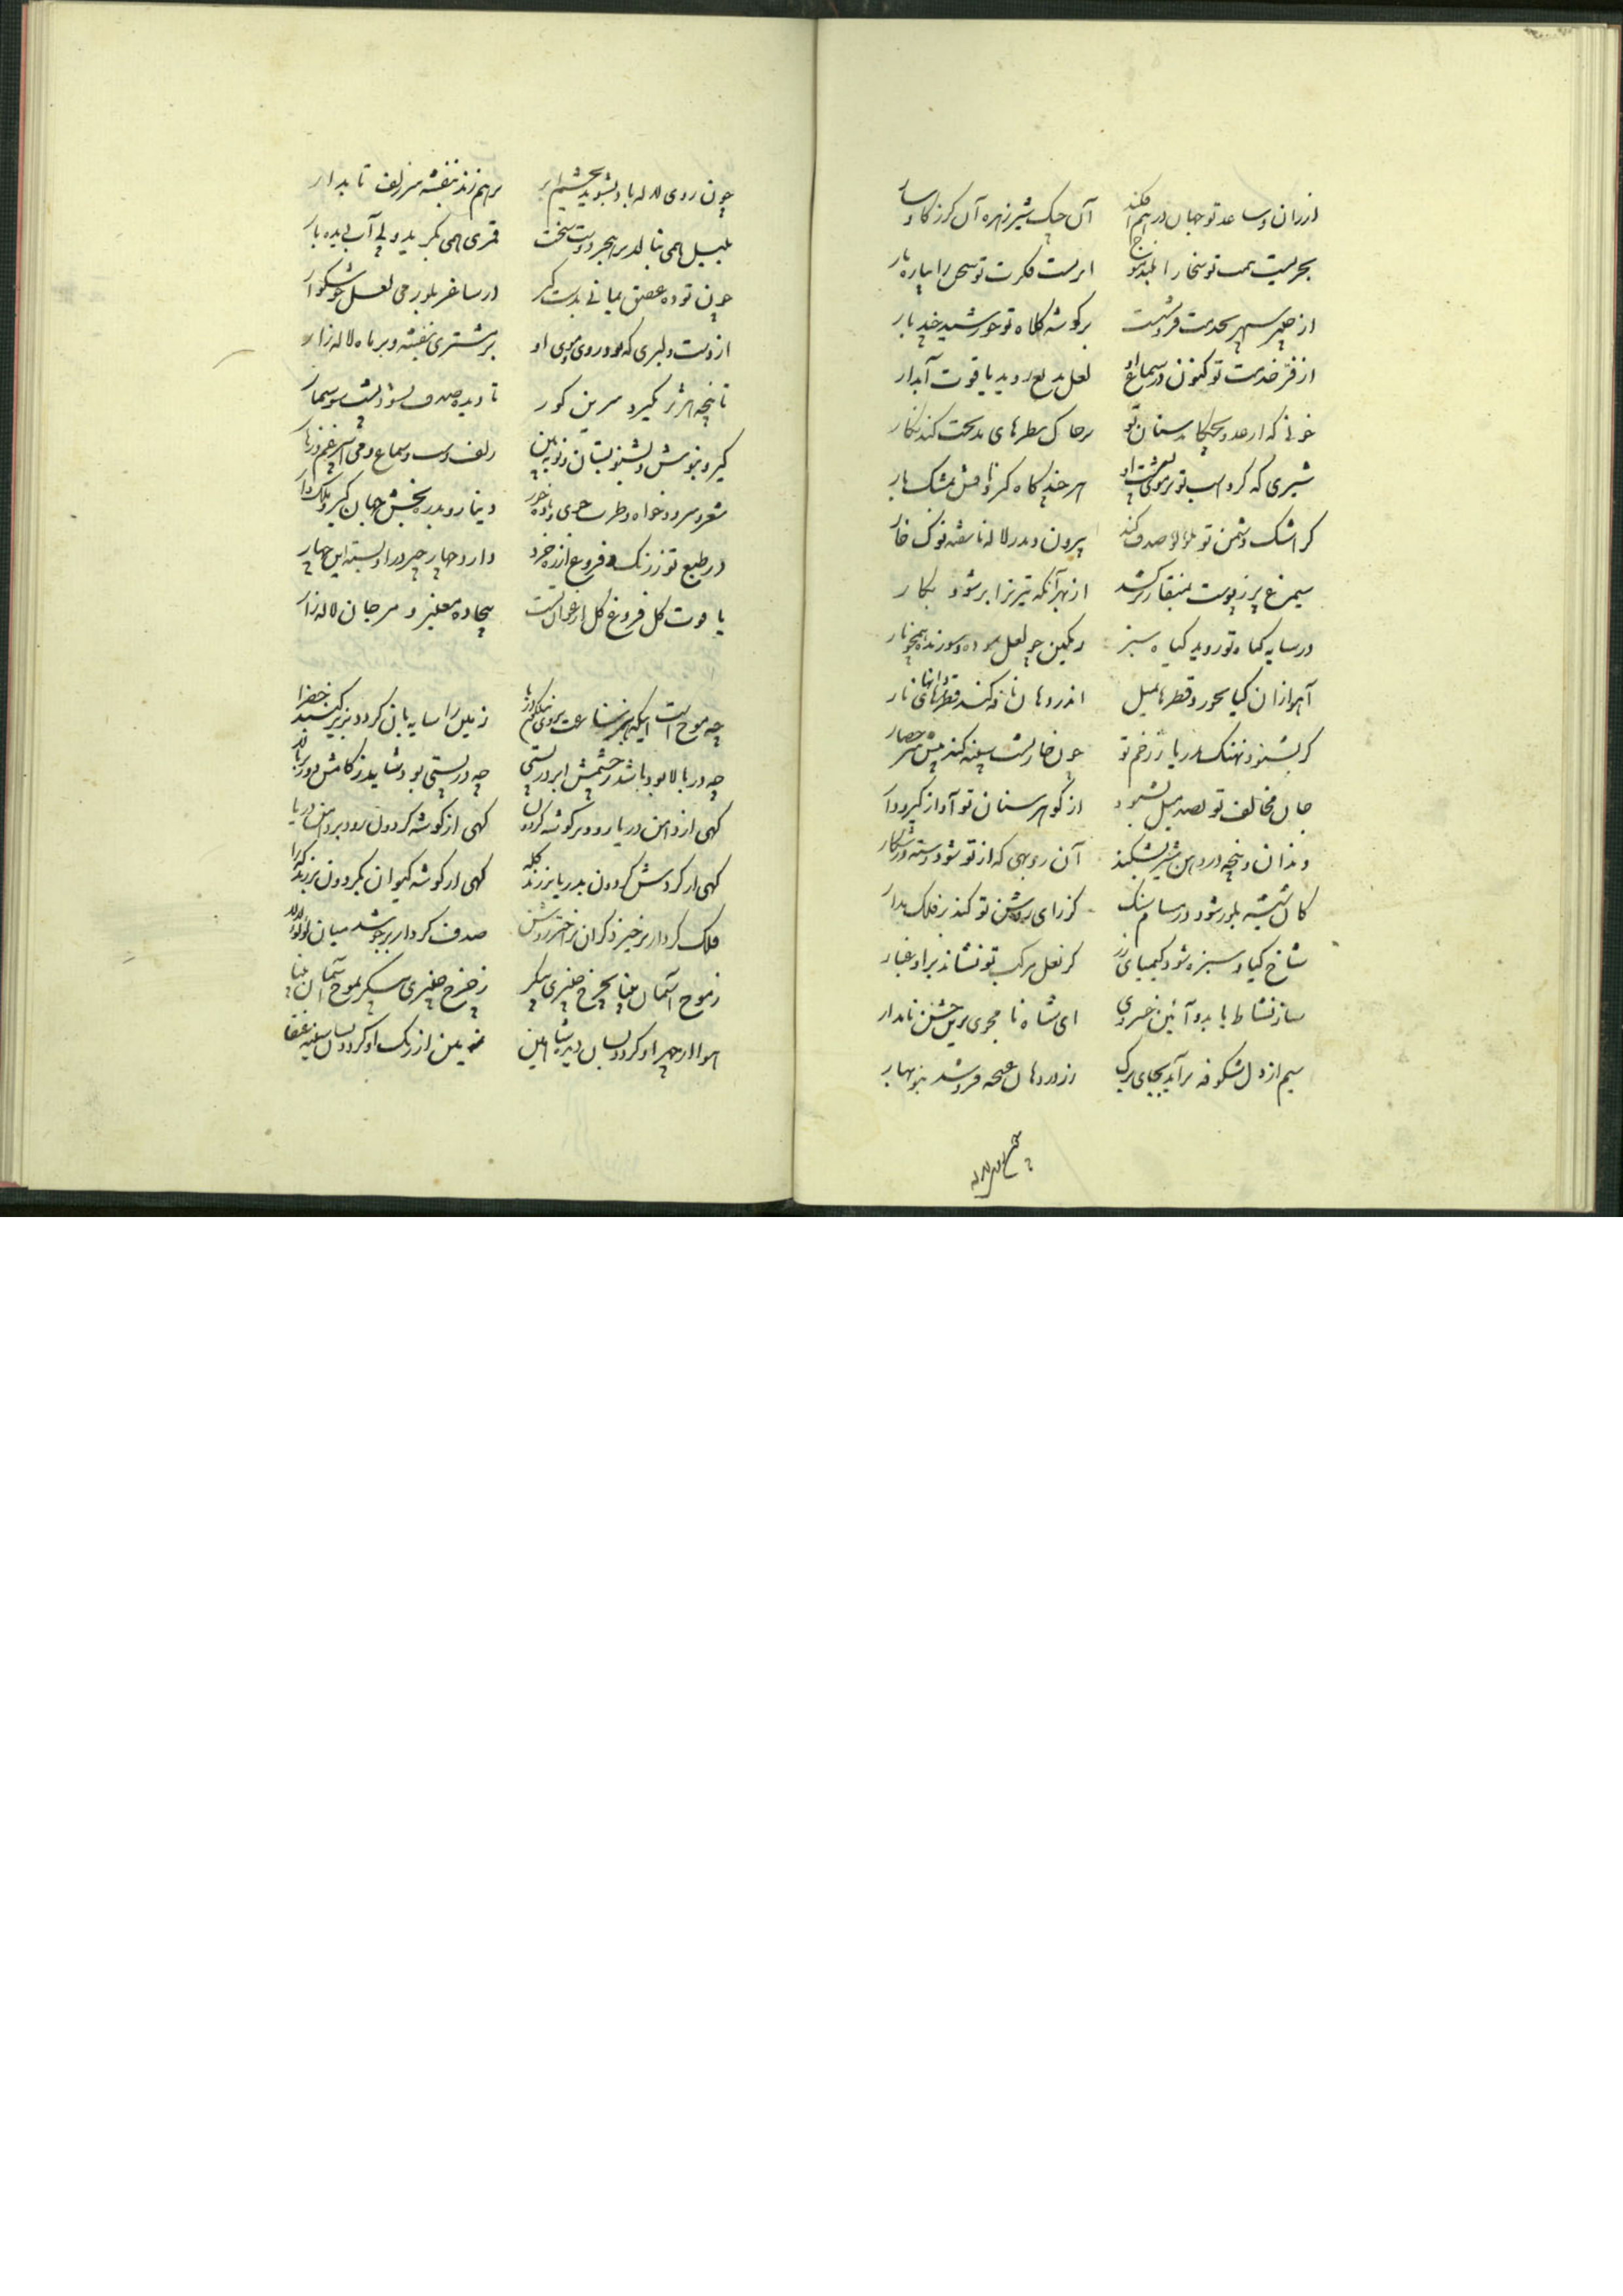 ازران و ساعد تو جهان درهم افکند آن چنک شیر زهره آن کرز کاوسار
بحریست همت تو سخا را بلند موج ابریست فکرت تو سخن را پیاره بار
از چتر سپهر بخدمت فرو نشست بر کوشه کلاه تو خورشید چند بار
از فر خدمت تو کنون در سماع او لعل بدیع روید یاقوت آبدار
خونی که از عدو بچکاند سنان تو بر خاک سطرهای بدیحت کند نکار
شیری که کرد اسب تو بر موی هر چند کاه کیرد نافش مشک بار
کر اشک دشمن تو بلولو صدف کند بیرون دمد ز لاله ناسفته نوک خار
سیمرغ پر ز پوست بمنقار برکشد از بهر آنکه تیر ترا پر شود بکار
در سایه کیاه تو روید کیاه سبز رنکین چو لعل بوده و سوزنده همچو نار
آهو ازان کیا بخورد قطرها بمیل اندر دهان نافه کند قطرهای نار
کر بشنود نهنک بدریا ز زخم تو چون خارپشت سینه کند پیش سر حصار
جان مخالف تو بصد میل بشنود از کوهر سنان تو آواز کیر و دار
دندان و پنجه در دهن شیر بشکند آن روبهی که از تو شود رسته در شکار
کان شیشه بلور شود در مسام سنک کز رای روشن تو کند بر فلک مدار
شاخ کیاه سبزه شود کیمیای زر کز نعل مرکب تو نشاند برو غبار
ساز نشاط باید و آئین خسروی ای شاه نامجوی برین جشن نامدار
سیم از دل شکوفه برآید بجای برک زر در دهان غنچه فروشد بنوبهار
چون روی لاله باد بشوید بچشم ابر برهم زند بنفشه سر زلف تابدار
بلبل همی بنالد بر هجر دوست سخت قمری همی بکرید و نی آب دیده بار
چون توده عقیق یمانی بدست کیر در ساغر بلور می لعل خوشکوار
از دست دلبری که بود روی و موی او بر مشتری بنفشه و بر ماه لاله زار
تا پنجه هژبر نکیرد سرین کور تا دیده صدف نشود پشت سوسمار
کیر و بنوش و بشنو بستان و زو ببین زلف و لب و سماع و می و
شعر و سرود خواه و طرب جوی و باده خور دینار و بدره بخش و جهان کیر و ملک دار
در طبع تو ز زنک و فروغ از ره خرد دارد چهار چیز در او بسته این چهار
یاقوت کل فروغ کل ارغوان لب بیجاده معنبر و مرجان لاله زار
چه موج است اینکه هر ساعت بروی نیلکون دریا زمین را سایه بان کردد بزیر کنبد خضرا
چه در بالا بود باشد ز چشمش ابر در پستی چه در پستی بود شاید ز کامش در بر بالا
کهی از دامن دریا رود بر کوشه کردون کهی از کوشه کردون رود بر دامن دریا
کهی از کردش کردون بدریا بر زند کله کهی از کوشه کیوان بکردون بر زند
فلک کردار برخیزد کران بر اختر روشن صدف کردار برجوشد میان لولو لالا
ز موج آسمان مینا بچرخ چنبری پیکر ز چرخ چنبری پیکر بموج آسمان مینا
هوا از چهر او کردد بسان دیده شاهین زمین از رنک او کردد بسان سینه عنقا